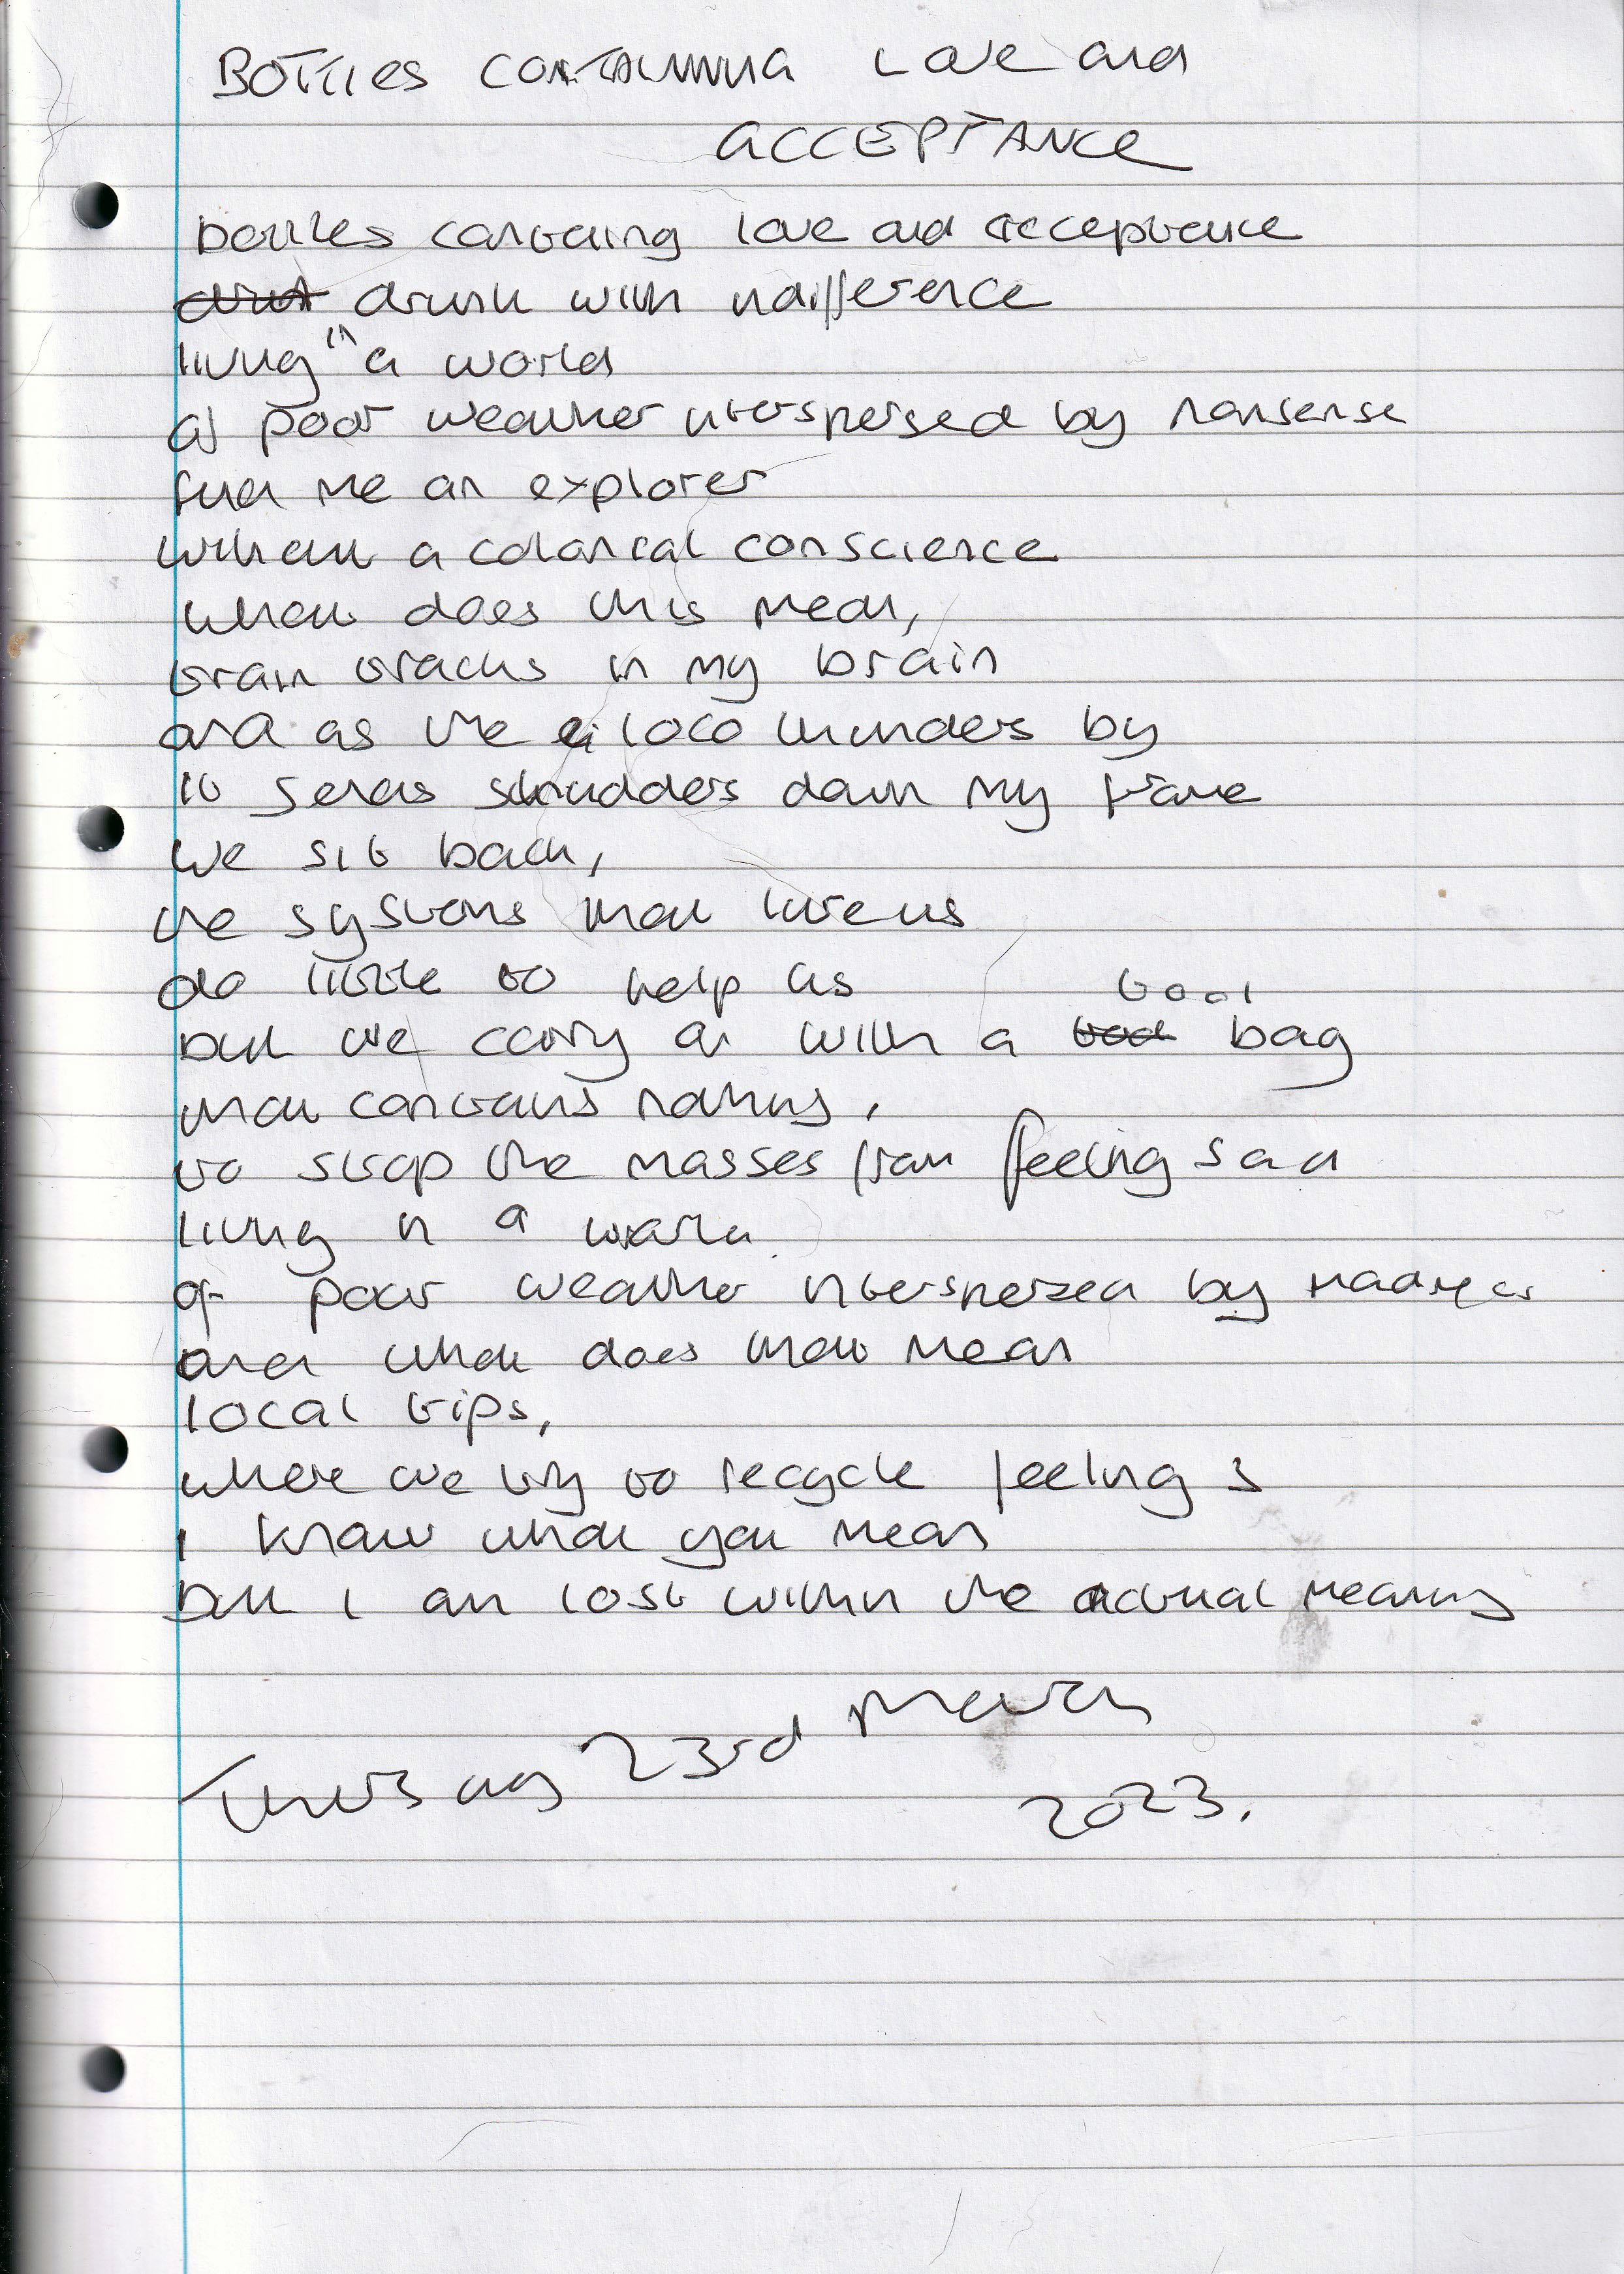 BOTTLES CONTAINING LOVE and
ACCEPTANCE
bottles containing love and acceptance
drunk with indifference
living in a world
of poor weather interspersed by nonsense
find me an explorer
without a colonial conscience
what does this mean,
train tracks in my brain
and as the loco thunders by
it sends shudders down my frame
we sit back,
the systems that
do little to help us
but we carry on with a tool bag
that contains nothing,
to stop the masses from feeling sad
living in a world
of poor weather interspersed by
and what does that mean
local tips,
where we try to recycle feelings
I know what you mean
but I am lost within the actual meaning
Thursday 23rd March
2023.